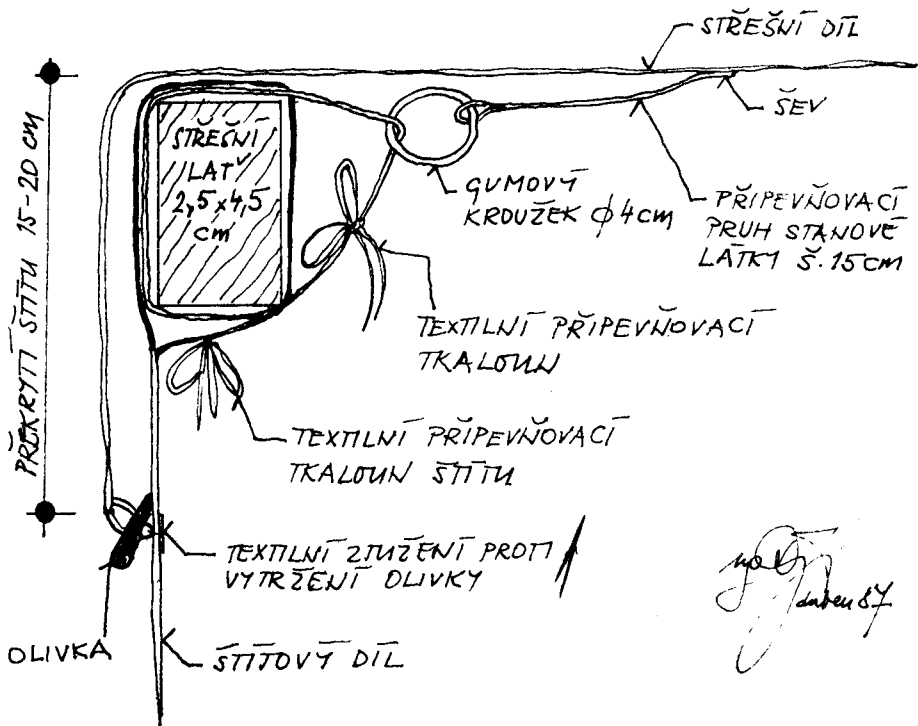 STŘEŠNÍ DÍL
ŠEV
STŘEŠNÍ
LAŤ
2,5 x 4,5
cm
GUMOVÝ
KROUŽEK ϕ 4cm
PŘIPEVŇOVACÍ
PRUH STANOVÉ
LÁTKY Š. 15cm
PŘEKRYTÍ ŠTÍTU 15-20 cm
TEXTILNÍ PŘIPEVŇOVACÍ
TKALOUN
TEXTILNÍ PŘIPEVŇOVACÍ
TKALOUN ŠTÍTU
TEXTILNÍ ZTUŽENÍ PROTI
VYTRŽENÍ OLIVKY
OLIVKA
ŠTÍTOVÝ DÍL
duben 87